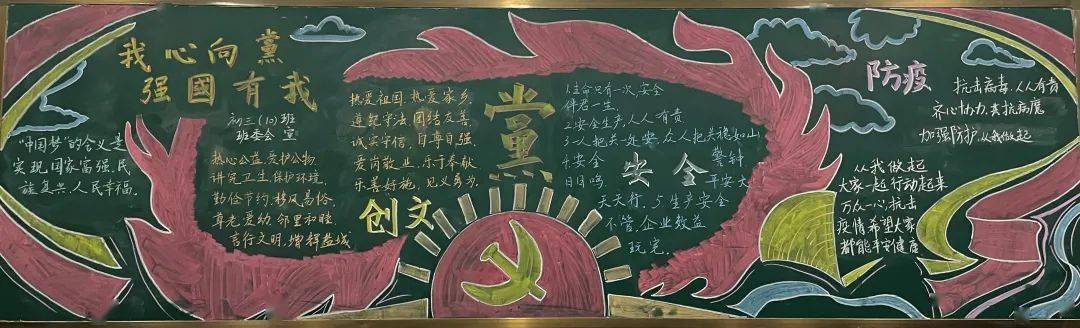 我心向黨
强國有我
初三(10)班
班委会 宣
"中国梦"的含义是
实现国家富强、民
族复兴、人民幸福。
热心公益 爱护公物
讲究卫生 保护环境
勤俭节约 移风易俗
尊老爱幼 邻里和睦
言行文明 增辉盐城
热爱祖国 热爱家乡
遵纪守法 团结友善
诚实守信 自尊自强
爱岗敬业 乐于奉献
乐善好施 见义勇为
创文
黨
1.生命只有一次,安全
伴君一生。
2.安全生产人人有责
3.一人把关一处安,众人把关稳如山
4.安全
警钟
日日鸣,
安全
平安大
天天行。5.生产安全
不管,企业效益
玩完。
防疫
抗击病毒,人人有责
齐心协力,共抗病魔
加强防护,从我做起
从我做起
大家一起行动起来
万众一心,抗击
疫情希望大家
都能平安健康